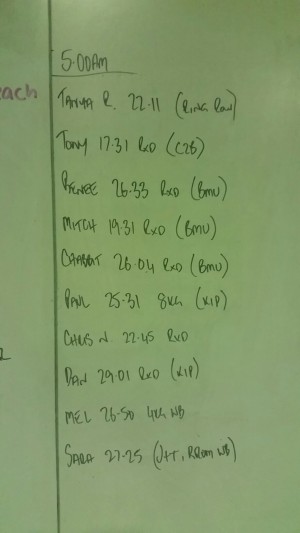 5:00AM
each
TANYA R. 22-11 (RING ROW)
TONY 17-31 RXD (C2B)
RENEE 26-33 RXD (BMU)
MITCH 19-31 RXD (BMU)
26-04 RXD (BMU)
PAUL 25-31 8KG (KIP)
CHRIS N 22-45 RXD
DAN 29-01 RXD (KIP)
MEL 26-50 4KG WB
SARA 27-25 (J+T, RROW WB)